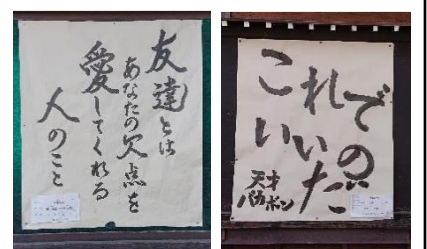 友達とは
あなたの欠点を
愛してくれる
人のこと
これで
いいのだ
天才
バカボン